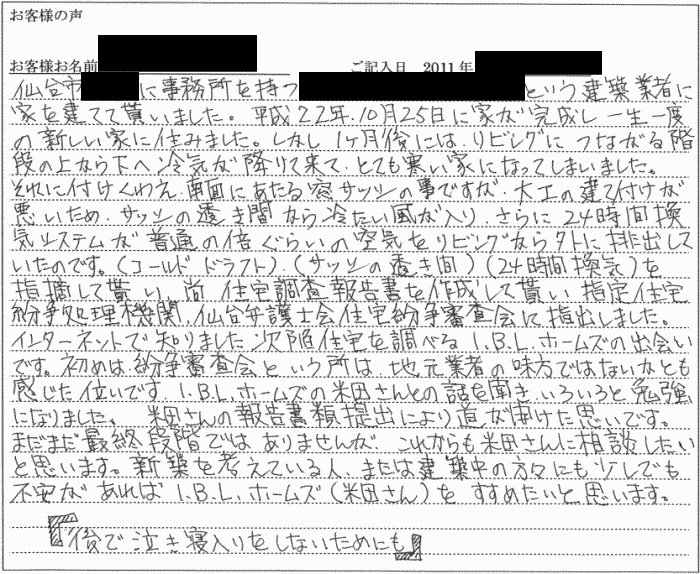 お客様の声
お客様お名前 ご記入日 2011年
仙台市 に事務所を持つ という建築業者に
家を建てて貰いました。平成22年.10月25日に家が完成し一生一度
の新しい家に住みました。しかし1ヶ月後には、リビングにつながる階
段の上から下へ冷気が降りて来て、とても寒い家になってしまいました。
それに付けくわえ、南面にあたる窓サッシの事ですが、大工の建て付けが
悪いため、サッシの透き間から冷たい風が入り、さらに24時間換
気システムが普通の倍ぐらいの空気をリビングから外に排出して
いたのです。(コールドドラフト)(サッシの透き間)(24時間換気)を
指摘して貰い、尚住宅調査報告書を作成して貰い指定住宅
紛争処理機関、仙台弁護士会住宅紛争審査会に指出しました。
インターネットで知りました欠陥住宅を調べるI.B.L.ホームズの出会い
です。初めは紛争審査会という所は、地元業者の味方ではないかとも
感じた位いです。I.B.L.ホームズの米田さんとの話を聞き、いろいろと勉強
になりました。米田さんの報告書類提出により道が開けた思いです。
まだまだ最終段階ではありませんが、これからも米田さんに相談したい
と思います。新築を考えている人、または建築中の方々にも少しでも
不安があればI.B.L.ホームズ(米田さん)をすすめたいと思います。
『後で泣き寝入りをしないためにも』